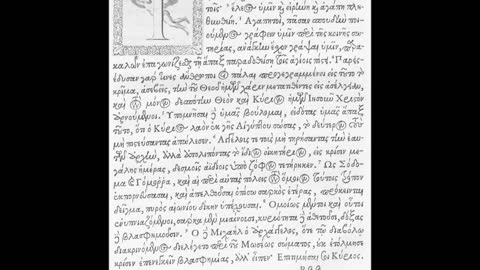 τοῖς· ἔλεος ὑμῖν καὶ εἰρήνη καὶ ἀγάπη πλη-
θυνθείη. Ἀγαπητοὶ, πᾶσαν σπουδὴν ποι-
ούμενος γράφειν ὑμῖν περὶ τῆς κοινῆς σω-
τηρίας, ἀνάγκην ἔσχον γράψαι ὑμῖν, παρα-
καλῶν ἐπαγωνίζεσθαι τῇ ἅπαξ παραδοθείσῃ τοῖς ἁγίοις πίστει. Παρεισ-
έδυσαν γάρ τινες ἄνθρωποι οἱ πάλαι προγεγραμμένοι εἰς τοῦτο τὸ
κρίμα, ἀσεβεῖς, τὴν τοῦ Θεοῦ ἡμῶν χάριν μετατιθέντες εἰς ἀσέλγειαν,
καὶ τὸν μόνον δεσπότην Θεὸν καὶ Κύριον ἡμῶν Ἰησοῦν Χριστὸν
ἀρνούμενοι. Ὑπομνῆσαι δὲ ὑμᾶς βούλομαι, εἰδότας ὑμᾶς ἅπαξ
τοῦτο, ὅτι ὁ Κύριος λαὸν ἐκ γῆς Αἰγύπτου σώσας, τὸ δεύτερον τοὺς
μὴ πιστεύσαντας ἀπώλεσεν. Ἀγγέλους τε τοὺς μὴ τηρήσαντας τὴν ἑαυ-
τῶν ἀρχὴν, ἀλλὰ ἀπολιπόντας τὸ ἴδιον οἰκητήριον, εἰς κρίσιν
μεγάλης ἡμέρας, δεσμοῖς ἀϊδίοις ὑπὸ ζόφον τετήρηκεν. Ὡς Σόδομα
καὶ Γόμορρα, καὶ αἱ περὶ αὐτὰς πόλεις τὸν ὅμοιον τούτοις τρόπον
ἐκπορνεύσασαι, καὶ ἀπελθοῦσαι ὀπίσω σαρκὸς ἑτέρας, πρόκεινται
δεῖγμα, πυρὸς αἰωνίου δίκην ὑπέχουσαι. Ὁμοίως μέντοι καὶ οὗτοι
ἐνυπνιαζόμενοι, σάρκα μὲν μιαίνουσι, κυριότητα δὲ ἀθετοῦσι, δόξας
δὲ βλασφημοῦσιν. Ὁ δὲ Μιχαὴλ ὁ ἀρχάγγελος, ὅτε τῷ διαβόλῳ
διακρινόμενος διελέγετο περὶ τοῦ Μωσέως σώματος, οὐκ ἐτόλμησε
κρίσιν ἐπενεγκεῖν βλασφημίας, ἀλλ' εἶπεν· Ἐπιτιμήσαι σοι Κύριος.